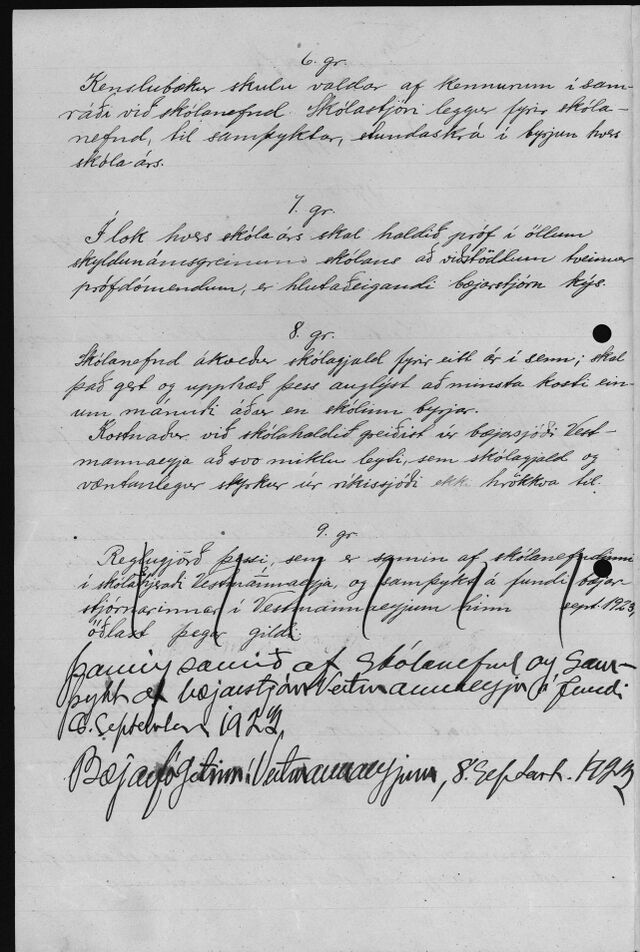 6. gr.
Kenslubækur skulu valdar af kennurum í sam-
ráði við skólanefnd. Skólastjóri leggur fyrir skóla-
nefnd, til samþyktar, stundaskrá í byrjun hvers
skóla árs.
7. gr.
Í lok hvers skóla árs skal haldið próf í öllum
skyldunámsgreinum skólans að viðstöddum tveimur
prófdómendum, er hlutaðeigandi bæjarstjórn kýs.
8. gr.
Skólanefnd ákveður skólagjald fyrir eitt ár í senn; skal
það gert og upphæð þess auglýst að minsta kosti ein-
um mánuði áður en skólinn byrjar.
Kostnaður við skólahaldið greiðist úr bæjarsjóði Vest-
mannaeyja að svo miklu leyti, sem skólagjald og
væntanlegur styrkur úr ríkissjóði ekki hrökkva til.
9. gr.
Reglugjörð þessi, sem er samin af skólanefndinni
í skólahjeraði Vestmannaeyja, og samþykt á fundi bæjar-
stjórnarinnar í Vestmannaeyjum hinn sept. 1923,
öðlast þegar gildi.
Þannig samið af skólanefnd og sam-
þykt af bæjarstjórn Vestmannaeyja á fundi
6. September 1923.
Bæjarfógetinn í Vestmannaeyjum, 8. Septbr. 1923